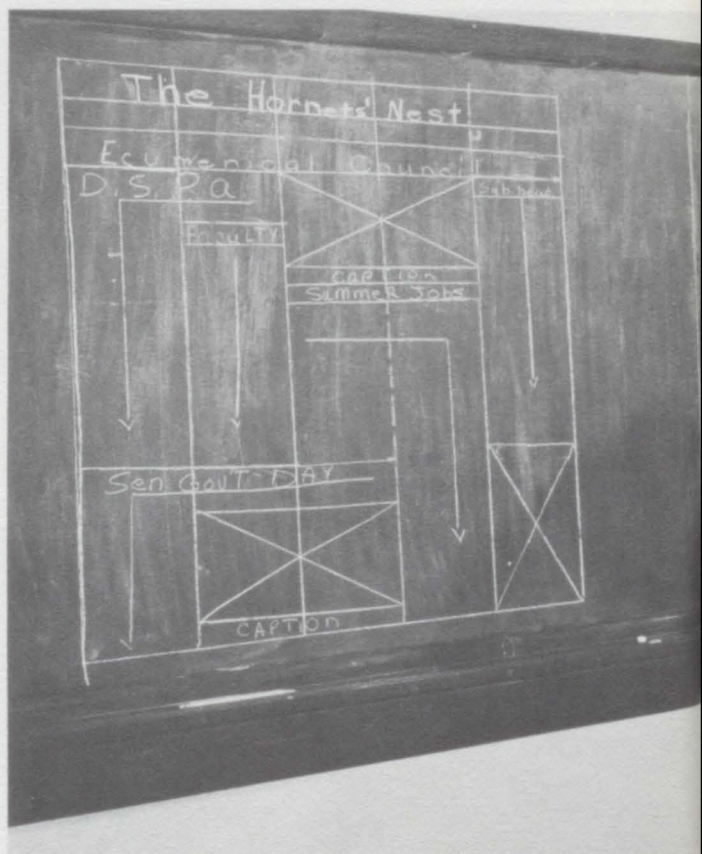 The Hornets' Nest
Ecumenical Council
D.S.P.a.
FACULTY
CAPTION
Summer Jobs
Sen GOVT DAY
CAPTION